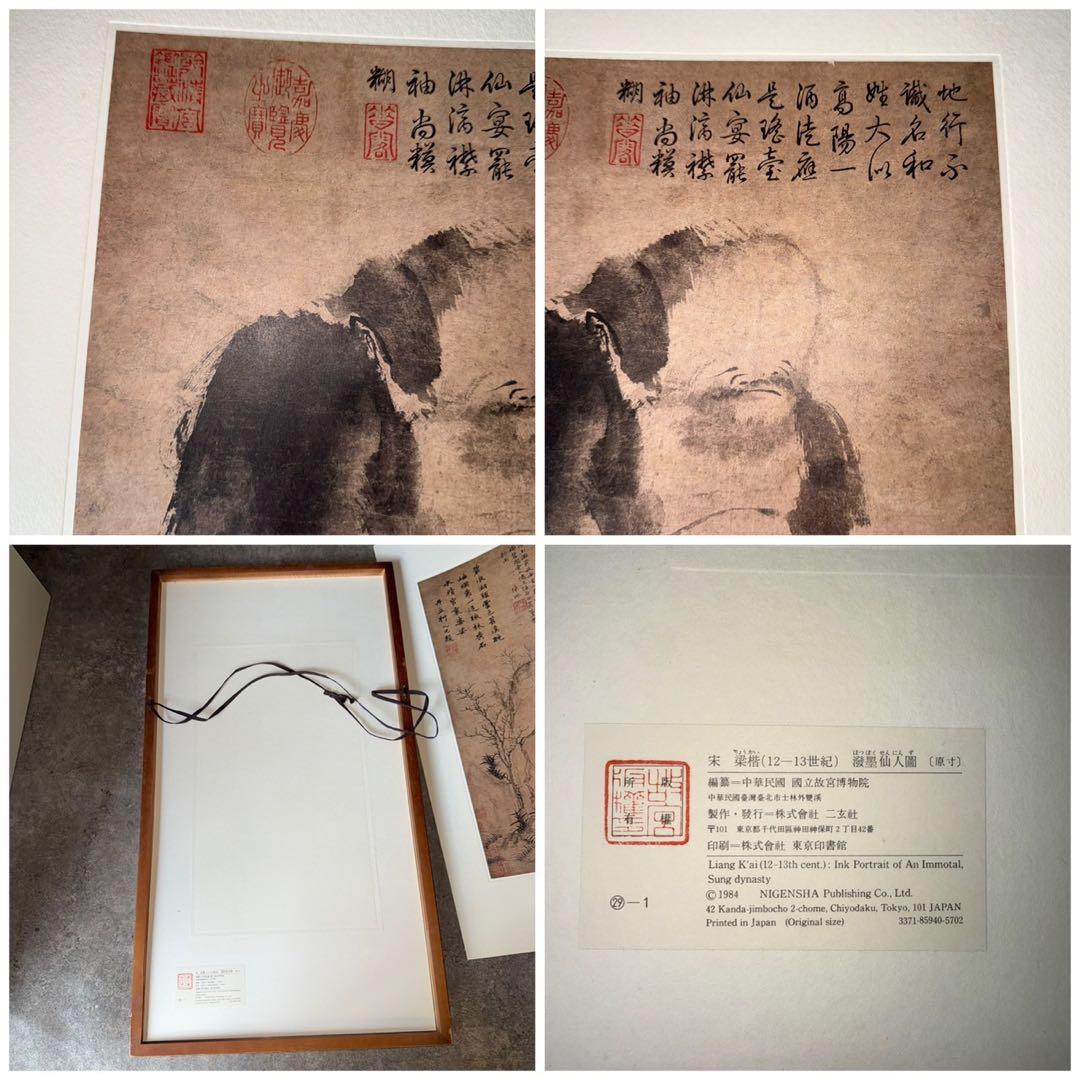 是瑤
仙宴罷
淋漓襟
袖尚糢
糊
嘉慶
御覽
之寶
地行不
識名和
姓大似
高陽一
酒徒應
是瑤臺
仙宴罷
淋漓襟
袖尚糢
糊
嘉慶
宋 梁楷(12—13世紀) 潑墨仙人圖 〔原寸〕
りょうかい はつぼくせんにんず
編纂＝中華民國 國立故宮博物院
中華民國臺灣臺北市士林外雙溪
製作・發行＝株式會社 二玄社
〒101 東京都千代田區神田神保町2丁目42番
印刷＝株式會社 東京印書館
Liang K'ai (12-13th cent.): Ink Portrait of An Immotal,
Sung dynasty
©1984 NIGENSHA Publishing Co., Ltd.
42 Kanda-jimbocho 2-chome, Chiyodaku, Tokyo, 101 JAPAN
Printed in Japan (Original size) 3371-85940-5702
㉙—1